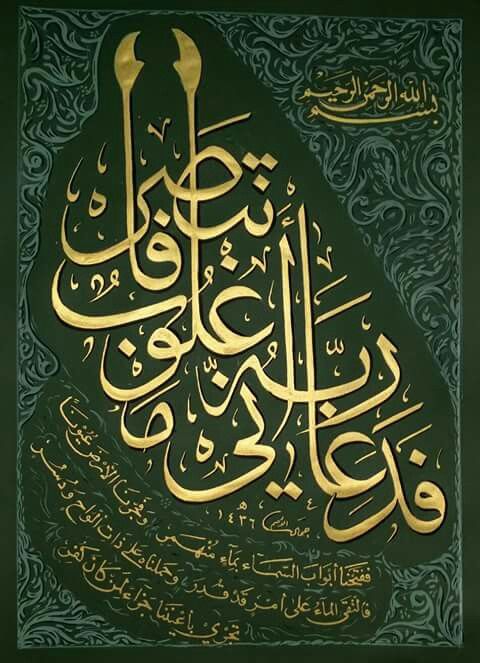 بسم الله الرحمن الرحيم
فَدَعَا رَبَّهُ أَنِّي مَغْلُوبٌ فَانتَصِرْ
١٤٣٦ هـ
ففتحنا أبواب السماء بماء منهمر وفجرنا الأرض عيونا
فالتقى الماء على أمر قد قدر وحملناه على ذات ألواح ودسر
تجري بأعيننا جزاء لمن كان كفر